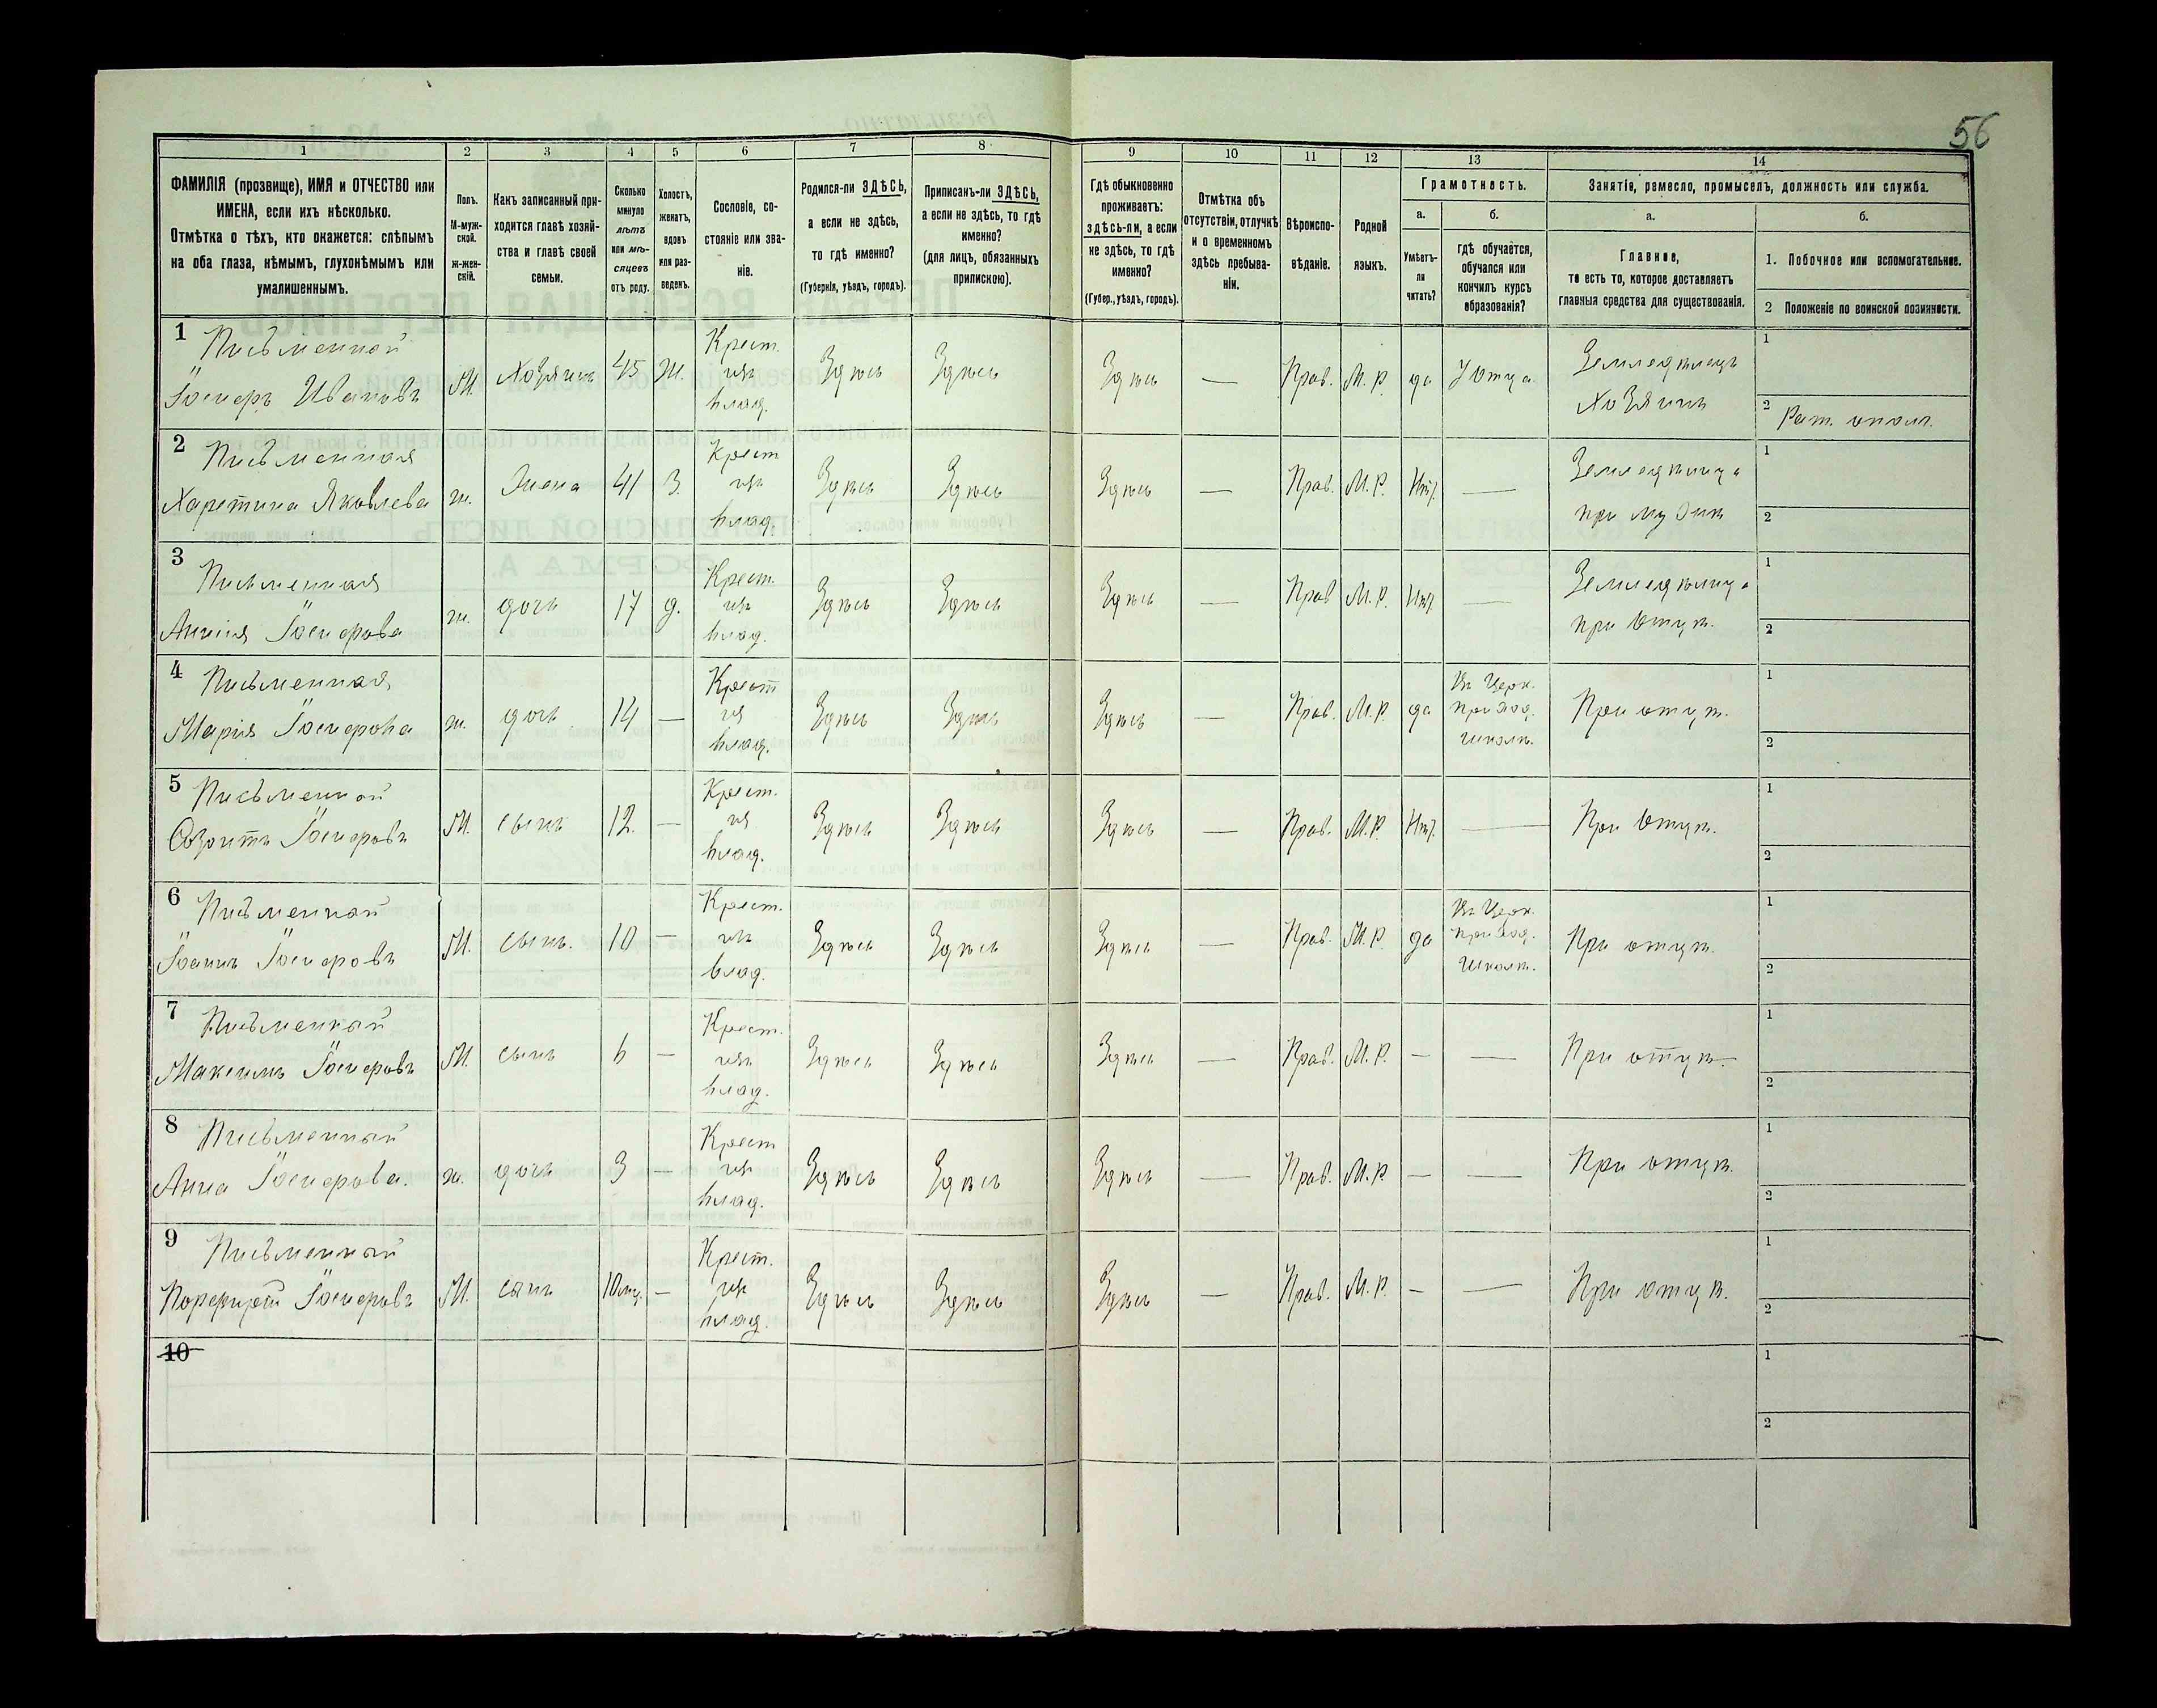 56
1 2 3 4 5 6 7 8 9 10 11 12 13 14
ФАМИЛІЯ (прозвище), ИМЯ и ОТЧЕСТВО или
ИМЕНА, если ихъ нѣсколько.
Отмѣтка о тѣхъ, кто окажется: слѣпымъ
на оба глаза, нѣмымъ, глухонѣмымъ или
умалишеннымъ.
Полъ.
М-муж-
ской.
ж-жен-
скій.
Какъ записанный при-
ходится главѣ хозяй-
ства и главѣ своей
семьи.
Сколько
минуло
лѣтъ
или мѣ-
сяцевъ
отъ роду.
Холостъ,
женатъ,
вдовъ
или раз-
веденъ.
Сословіе, со-
стояніе или зва-
ніе.
Родился-ли ЗДѢСЬ,
а если не здѣсь,
то гдѣ именно?
(Губернія, уѣздъ, городъ).
Приписанъ-ли ЗДѢСЬ,
а если не здѣсь, то гдѣ
именно?
(для лицъ, обязанныхъ
припискою).
Гдѣ обыкновенно
проживаетъ:
здѣсь-ли, а если
не здѣсь, то гдѣ
именно?
(Губер., уѣздъ, городъ).
Отмѣтка объ
отсутствіи, отлучкѣ
и о временномъ
здѣсь пребыва-
ніи.
Вѣроиспо-
вѣданіе.
Родной
языкъ.
Грамотность.
а.
Умѣетъ-
ли
читать?
б.
гдѣ обучается,
обучался или
кончилъ курсъ
образованія?
Занятіе, ремесло, промыселъ, должность или служба.
а.
Главное,
то есть то, которое доставляетъ
главныя средства для существованія.
б.
1. Побочное или вспомогательное.
2 Положеніе по воинской повинности.
1 Письменной Крест. Земледѣлецъ 1
М. Хозяинъ 45 Ж. изъ Здѣсь Здѣсь Здѣсь — Прав. М. Р. да У отца
Ивановъ влад. Хозяинъ 2 Рат. опол.
2 Письменная Крест Земледѣлица 1
ж. Жена 41 З. изъ Здѣсь Здѣсь Здѣсь — Прав. М. Р. Нѣт. —
Харетина Яковлева влад. при мужѣ 2
3 Письменная Крест. Земледѣлица 1
ж. дочь 17 д. изъ Здѣсь Здѣсь Здѣсь — Прав М. Р. Нѣт. —
влад. при отцѣ. 2
4 Письменная Крест Въ Церк. 1
ж. дочь 14 — из Здѣсь Здѣсь Здѣсь — Прав. М. Р. да приход. При отцѣ.
Марія влад. школѣ. 2
5 Письменной Крест. 1
М. сынъ 12. — из Здѣсь Здѣсь Здѣсь — Прав. М. Р. Нѣт. — При отцѣ.
влад. 2
6 Письменной Крест. Въ Церк. 1
М. сынъ. 10 — изъ Здѣсь Здѣсь Здѣсь — Прав. М. Р. да приход. При отцѣ.
влад. школѣ. 2
7 Письменной Крест. 1
М. сынъ 6 — изъ Здѣсь Здѣсь Здѣсь — Прав. М. Р. — — При отцѣ
Максимъ влад. 2
8 Письменный Крест 1
ж. дочь 3 — изъ Здѣсь Здѣсь Здѣсь — Прав. М. Р — — При отцѣ.
Анна влад. 2
9 Письменный Крест. 1
М. сынъ 10 мц. — изъ Здѣсь Здѣсь Здѣсь — Прав. М. Р. — — При отцѣ.
влад. 2
10 1
2